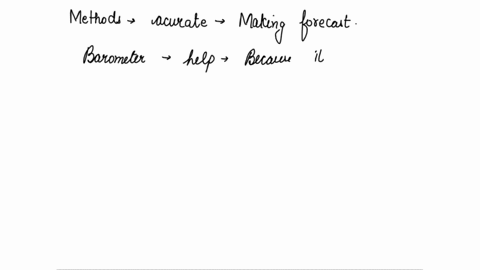 Methods → acurate → Making forecast.
Barometer → help → Because it